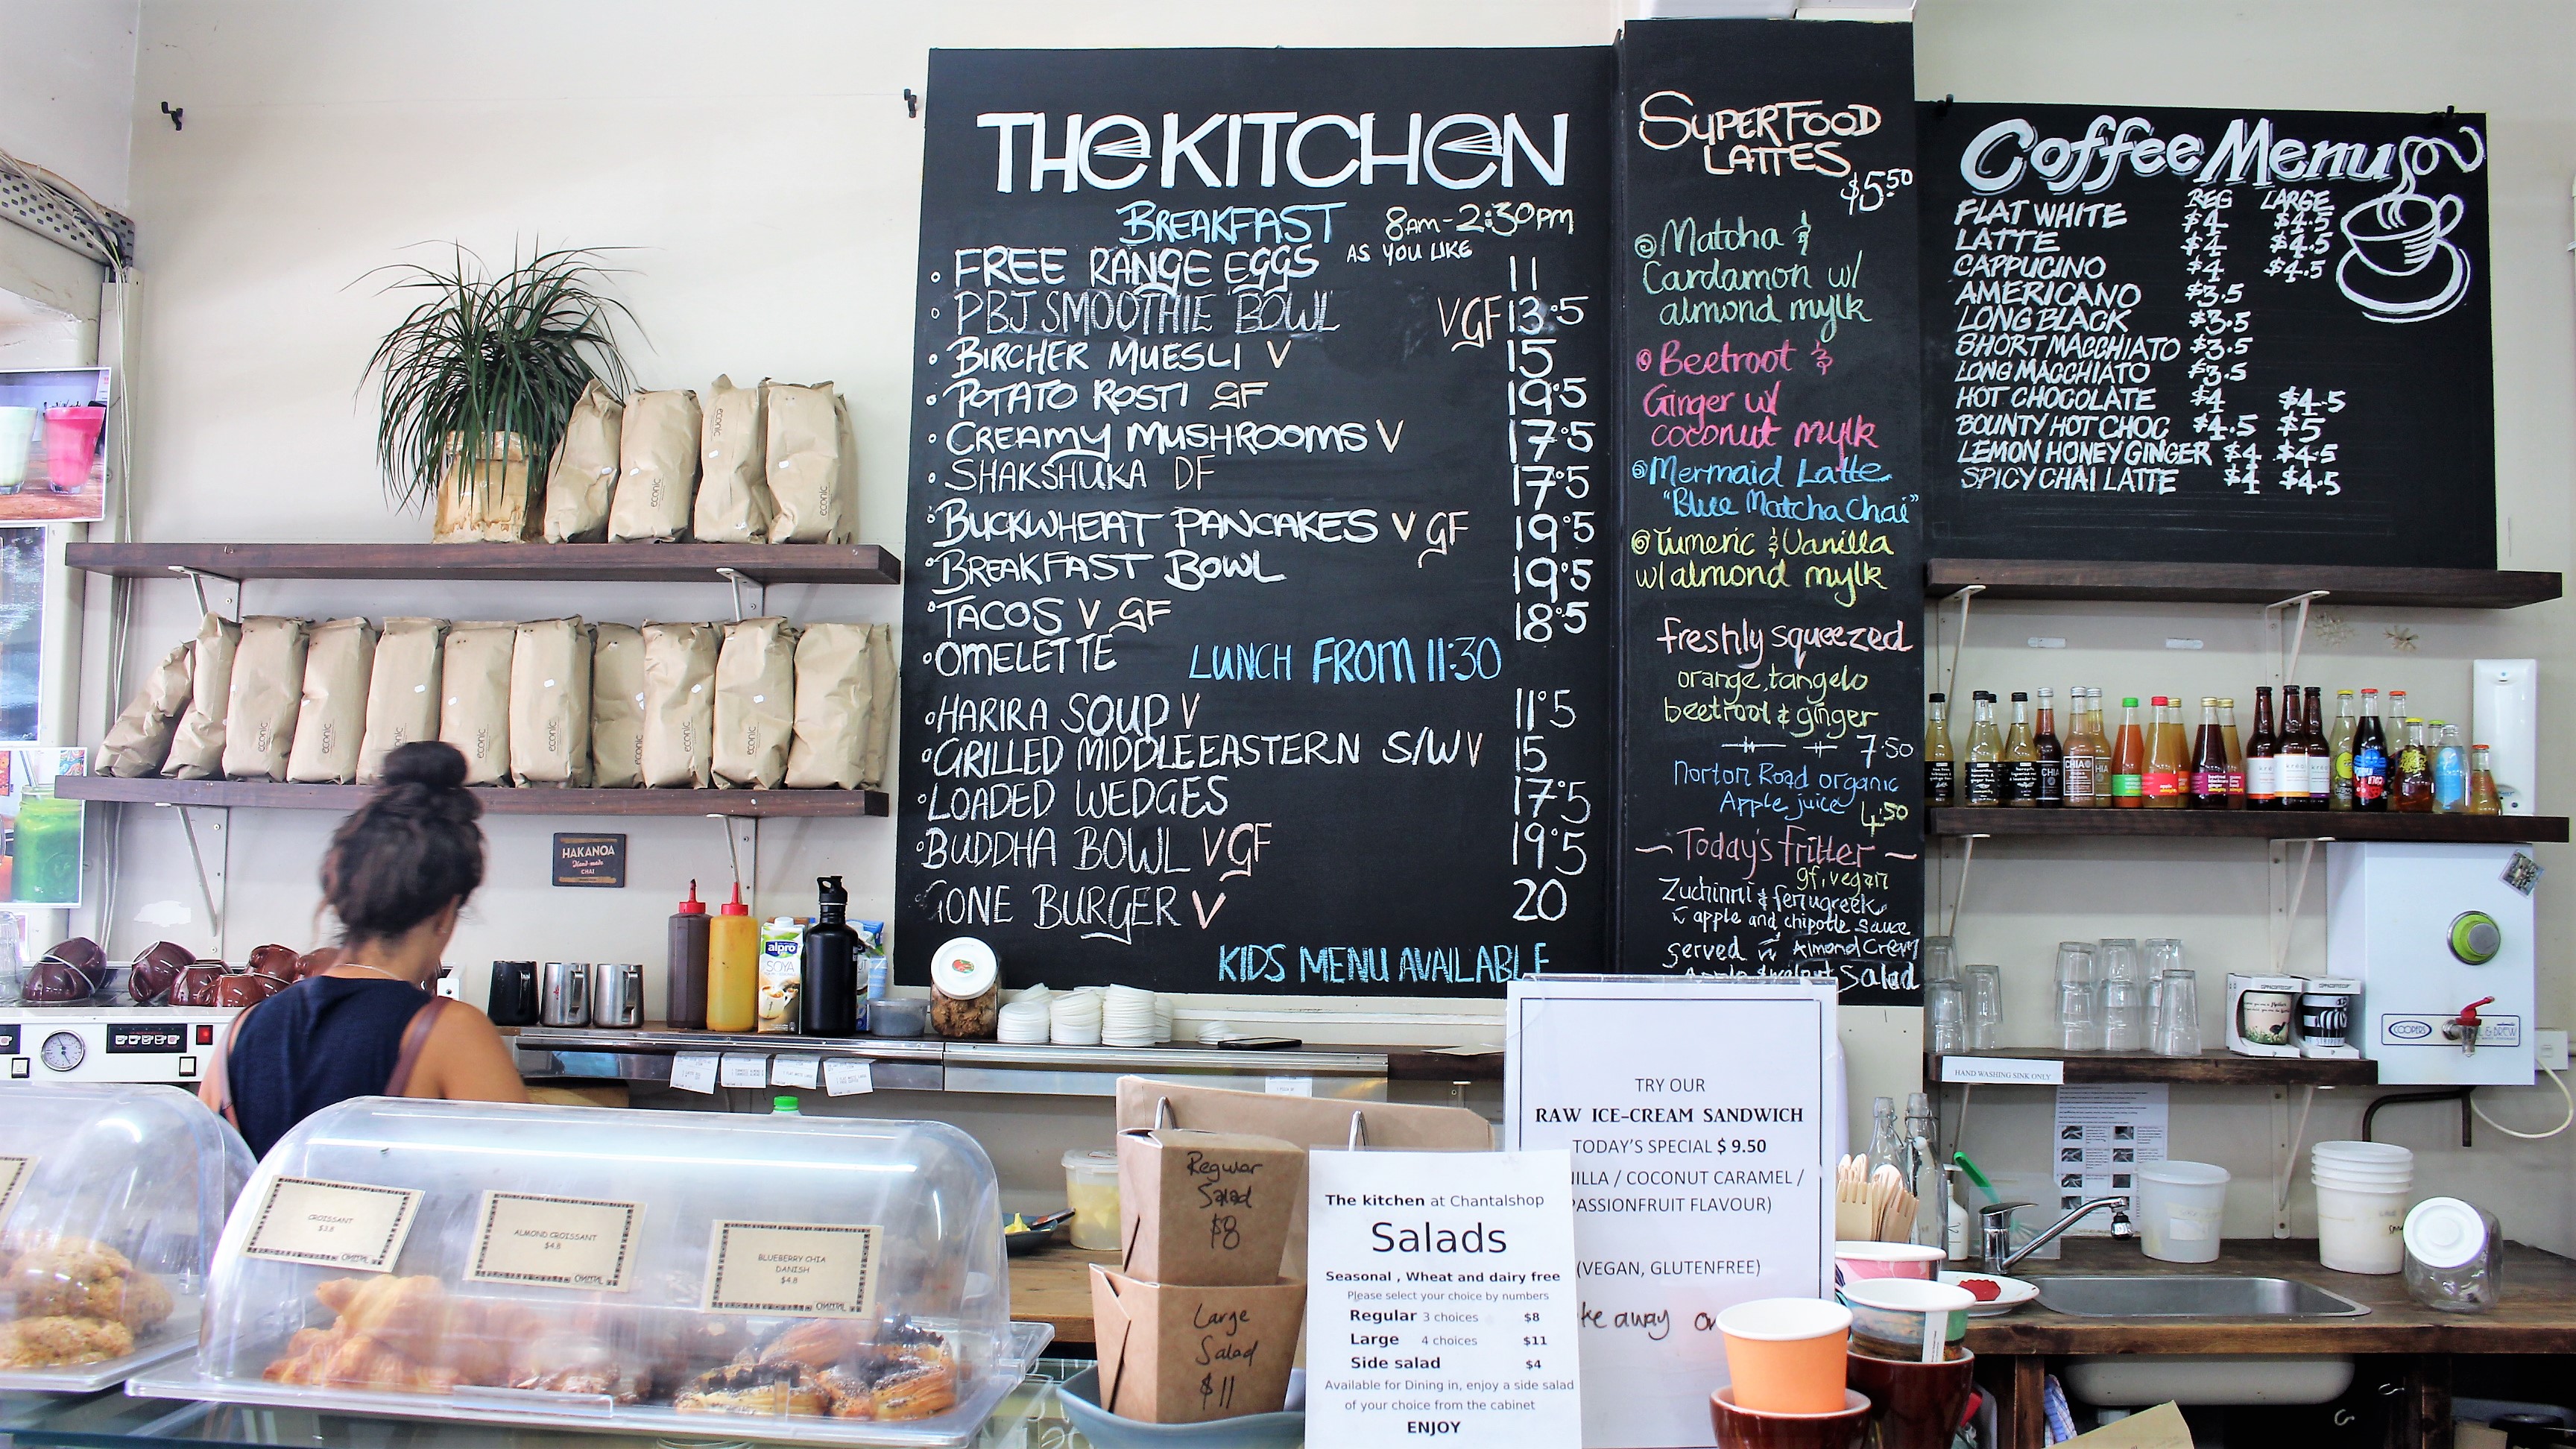 THE KITCHEN
BREAKFAST 8AM-2:30PM
FREE RANGE EGGS AS YOU LIKE 11
PBJ SMOOTHIE BOWL V GF 13.5
BIRCHER MUESLI V 15
POTATO ROSTI GF 19.5
CREAMY MUSHROOMS V 17.5
SHAKSHUKA DF 17.5
BUCKWHEAT PANCAKES V GF 19.5
BREAKFAST BOWL 19.5
TACOS V GF 18.5
OMELETTE
LUNCH FROM 11:30
HARIRA SOUP V 11.5
GRILLED MIDDLE EASTERN S/W V 15
LOADED WEDGES 17.5
BUDDHA BOWL V GF 19.5
GONE BURGER V 20
KIDS MENU AVAILABLE
SUPERFOOD
LATTES
$5.50
Matcha &
Cardamon w/
almond mylk
Beetroot &
Ginger w/
coconut mylk
Mermaid Latte
"Blue Matcha Chai"
Tumeric & Vanilla
w/ almond mylk
freshly squeezed
orange, tangelo
beetroot & ginger
7.50
Norton Road organic
Apple juice
4.50
Today's fritter
gf, vegan
Zuchinni & fenugreek
w apple and chipotle sauce
served w Almond Cream
Salad
Coffee Menu
REG LARGE
FLAT WHITE $4 $4.5
LATTE $4 $4.5
CAPPUCINO $4 $4.5
AMERICANO $3.5
LONG BLACK $3.5
SHORT MACCHIATO $3.5
LONG MACCHIATO $3.5
HOT CHOCOLATE $4 $4.5
BOUNTY HOT CHOC $4.5 $5
LEMON HONEY GINGER $4 $4.5
SPICY CHAI LATTE $4 $4.5
econic
econic
econic
econic
econic
econic
econic
econic
econic
econic
econic
HAKANOA
Hand-made
CHAI
alpro
SOYA
CHIA
CHIA
CHIA
COOPERS
& BREW
HAND WASHING SINK ONLY
TRY OUR
RAW ICE-CREAM SANDWICH
TODAY'S SPECIAL $ 9.50
ILLA / COCONUT CARAMEL /
PASSIONFRUIT FLAVOUR)
(VEGAN, GLUTENFREE)
ke away on
CROISSANT
$3.8
ALMOND CROISSANT
$4.8
BLUEBERRY CHIA
DANISH
$4.8
Regular
Salad
$8
Large
Salad
$11
The kitchen at Chantalshop
Salads
Seasonal , Wheat and dairy free
Please select your choice by numbers
Regular 3 choices $8
Large 4 choices $11
Side salad $4
Available for Dining in, enjoy a side salad
of your choice from the cabinet
ENJOY